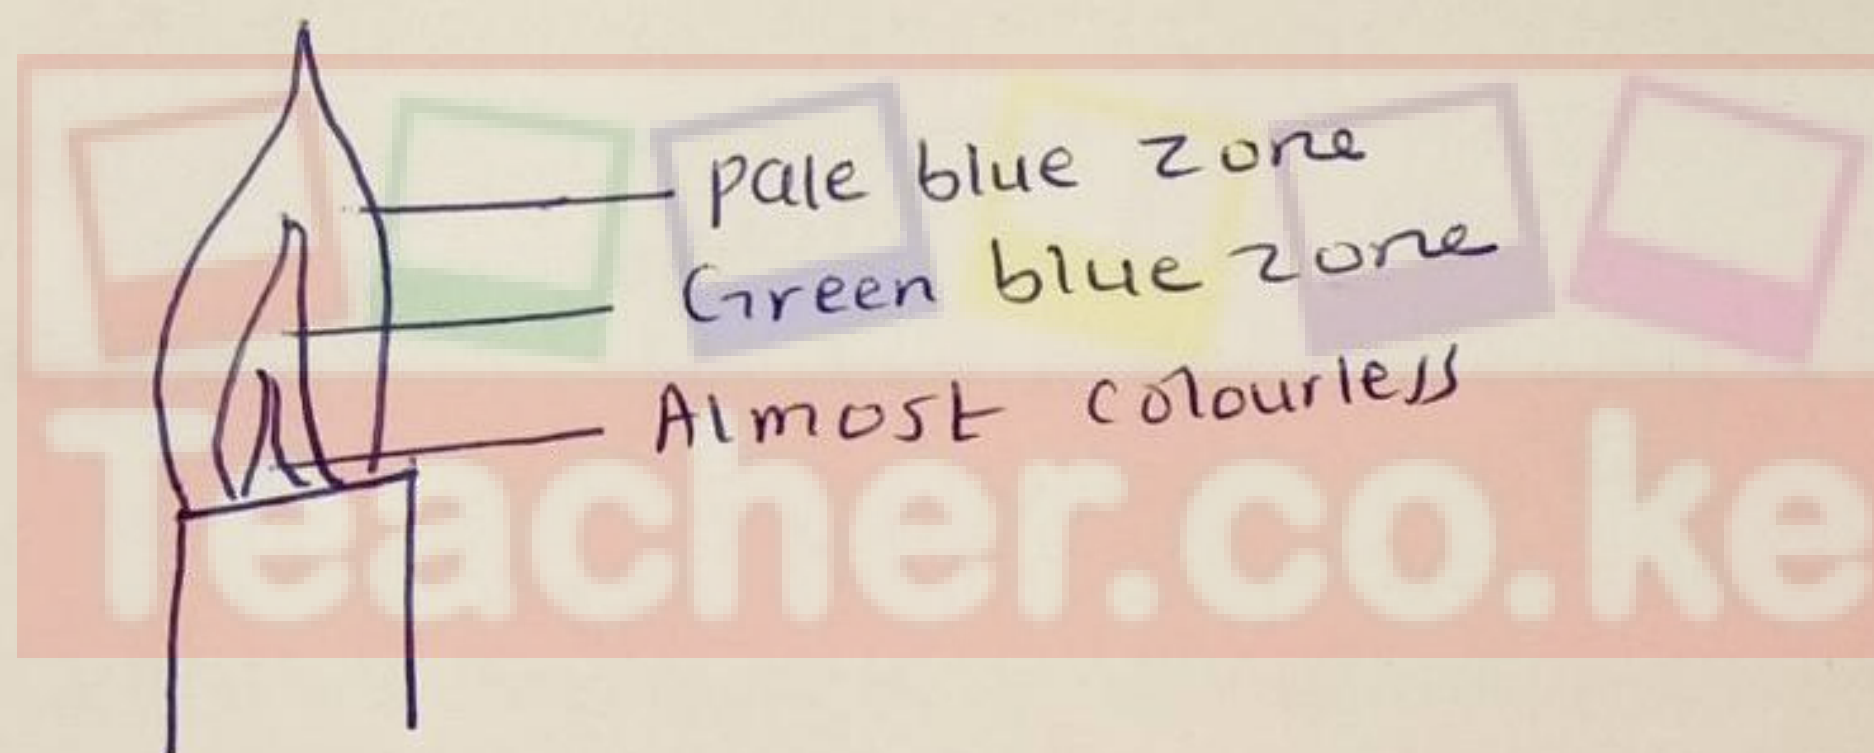 pale blue zone
Green blue zone
Almost colourless
Teacher.co.ke